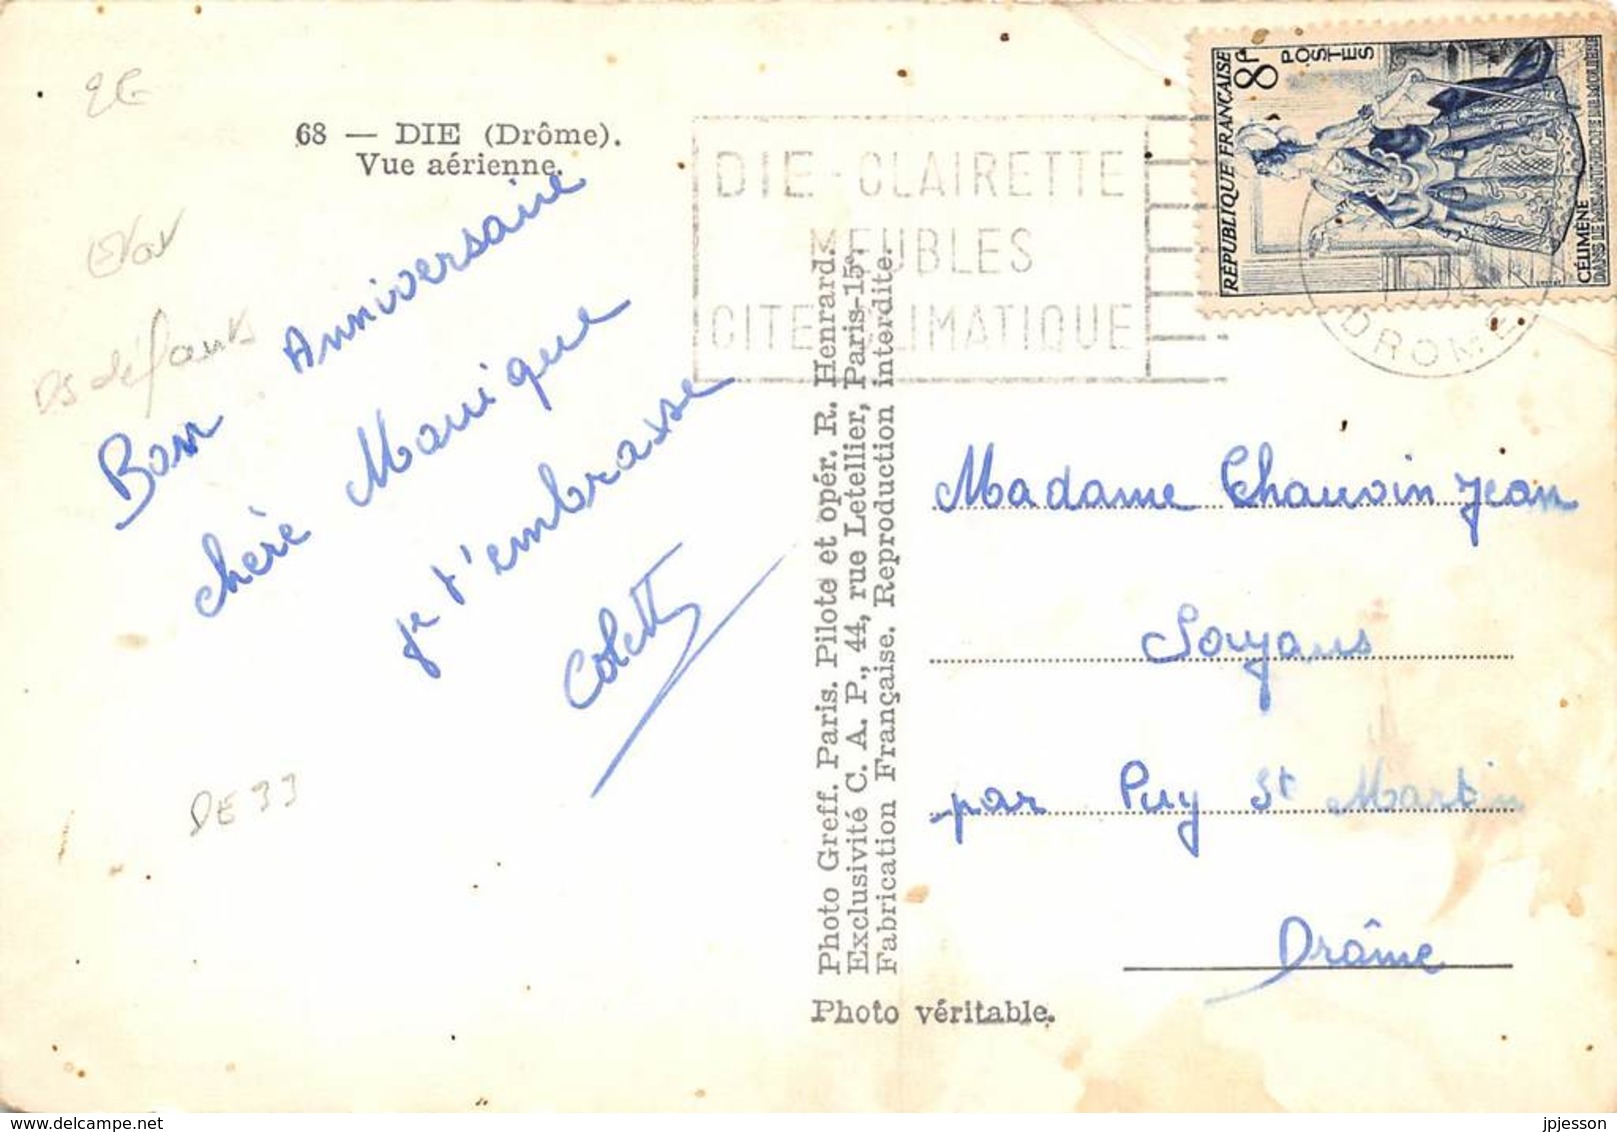 2€
68 — DIE (Drôme).
Vue aérienne.
Bon Anniversaire
chère Monique
je t'embrasse
Colette
Ds défauts
DE 33
DIE - CLAIRETTE
MEUBLES
CITE CLIMATIQUE
RÉPUBLIQUE FRANÇAISE
8F
POSTES
CÉLIMÈNE
DANS LE MISANTHROPE DE MOLIÈRE
DROME
Photo Greff. Paris. Pilote et opér. R. Henrard.
Exclusivité C. A. P., 44, rue Letellier, Paris-15e.
Fabrication Française. Reproduction interdite.
Photo véritable.
Madame Chauvin Jean
Soyans
par Puy St Martin
Drôme
jpjesson